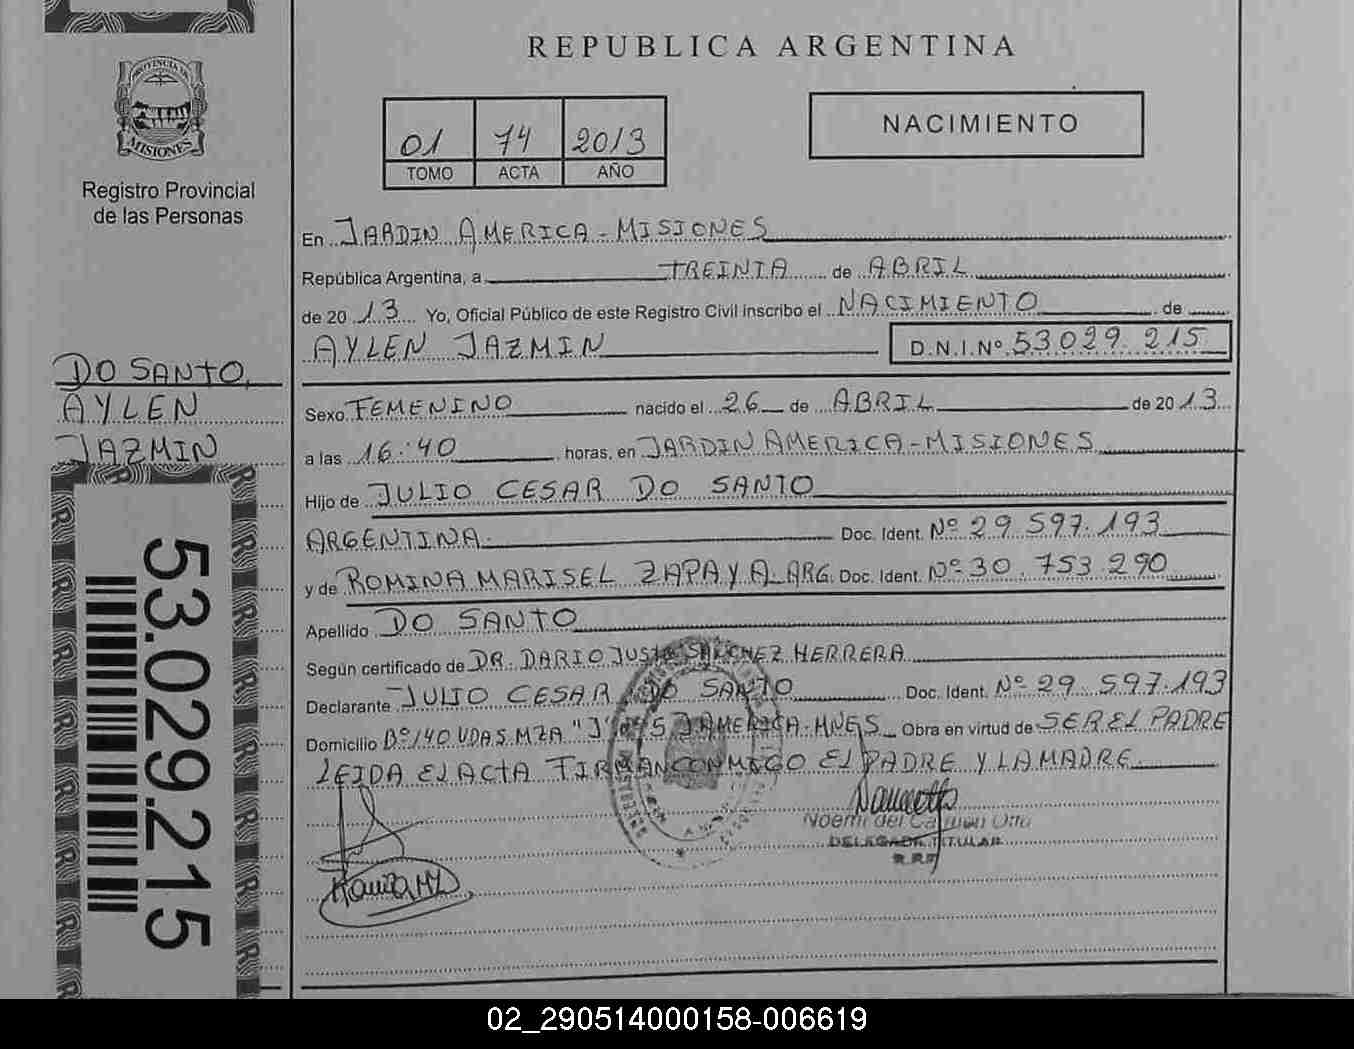 REPUBLICA ARGENTINA
PROVINCIA DE
MISIONES
Registro Provincial
de las Personas
01 74 2013
TOMO ACTA AÑO
NACIMIENTO
En JARDIN AMERICA - MISIONES
República Argentina, a TREINTA de ABRIL
de 20 13 Yo, Oficial Público de este Registro Civil inscribo el NACIMIENTO de
AYLEN JAZMIN D.N.I.Nº 53029.215
DO SANTO,
AYLEN
JAZMIN
Sexo FEMENINO nacido el 26 de ABRIL de 20 13
a las 16:40 horas, en JARDIN AMERICA - MISIONES
Hijo de JULIO CESAR DO SANTO
ARGENTINA. Doc. Ident. Nº 29.597.193
y de ROMINA MARISEL ZAPAYA. ARG. Doc. Ident. Nº 30.753.290
Apellido DO SANTO
Según certificado de DR. DARIO JUSTO SANCHEZ HERRERA
Declarante JULIO CESAR DO SANTO Doc. Ident. Nº 29.597.193
Domicilio Bº 140 VDAS. MZA "J" J. AMERICA - MNES Obra en virtud de SER EL PADRE
LEIDA EL ACTA FIRMAN CONMIGO EL PADRE Y LA MADRE.
Noemi del Carmen
DELEGADA TITULAR
53.029.215
02_290514000158-006619